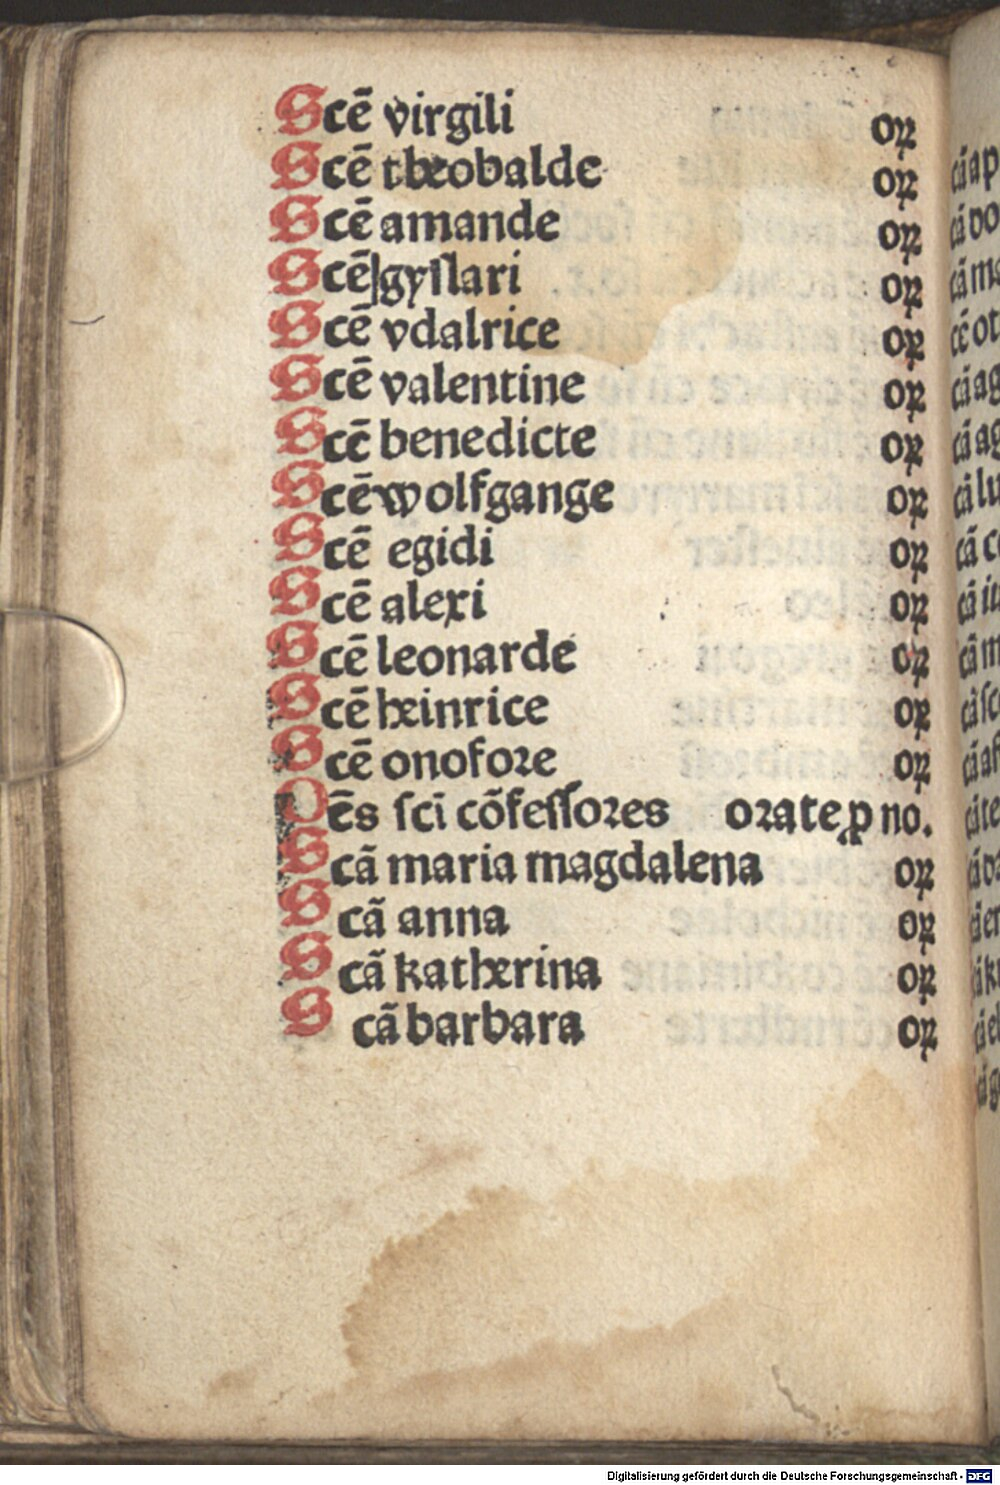 Scē virgili orꝛ
Scē theobalde orꝛ
Scē amande orꝛ
Scē gyſlari orꝛ
Scē vdalrice orꝛ
Scē valentine orꝛ
Scē benedicte orꝛ
Scē wolfgange orꝛ
Scē egidi orꝛ
Scē alexi orꝛ
Scē leonarde orꝛ
Scē heinrice orꝛ
Scē onofoꝛe orꝛ
Oēs ſcī cōfeſſoꝛes oꝛate ꝓ no.
Scā maria magdalena orꝛ
Scā anna orꝛ
Scā katherina orꝛ
Scā barbara orꝛ
Digitalisierung gefördert durch die Deutsche Forschungsgemeinschaft - DFG